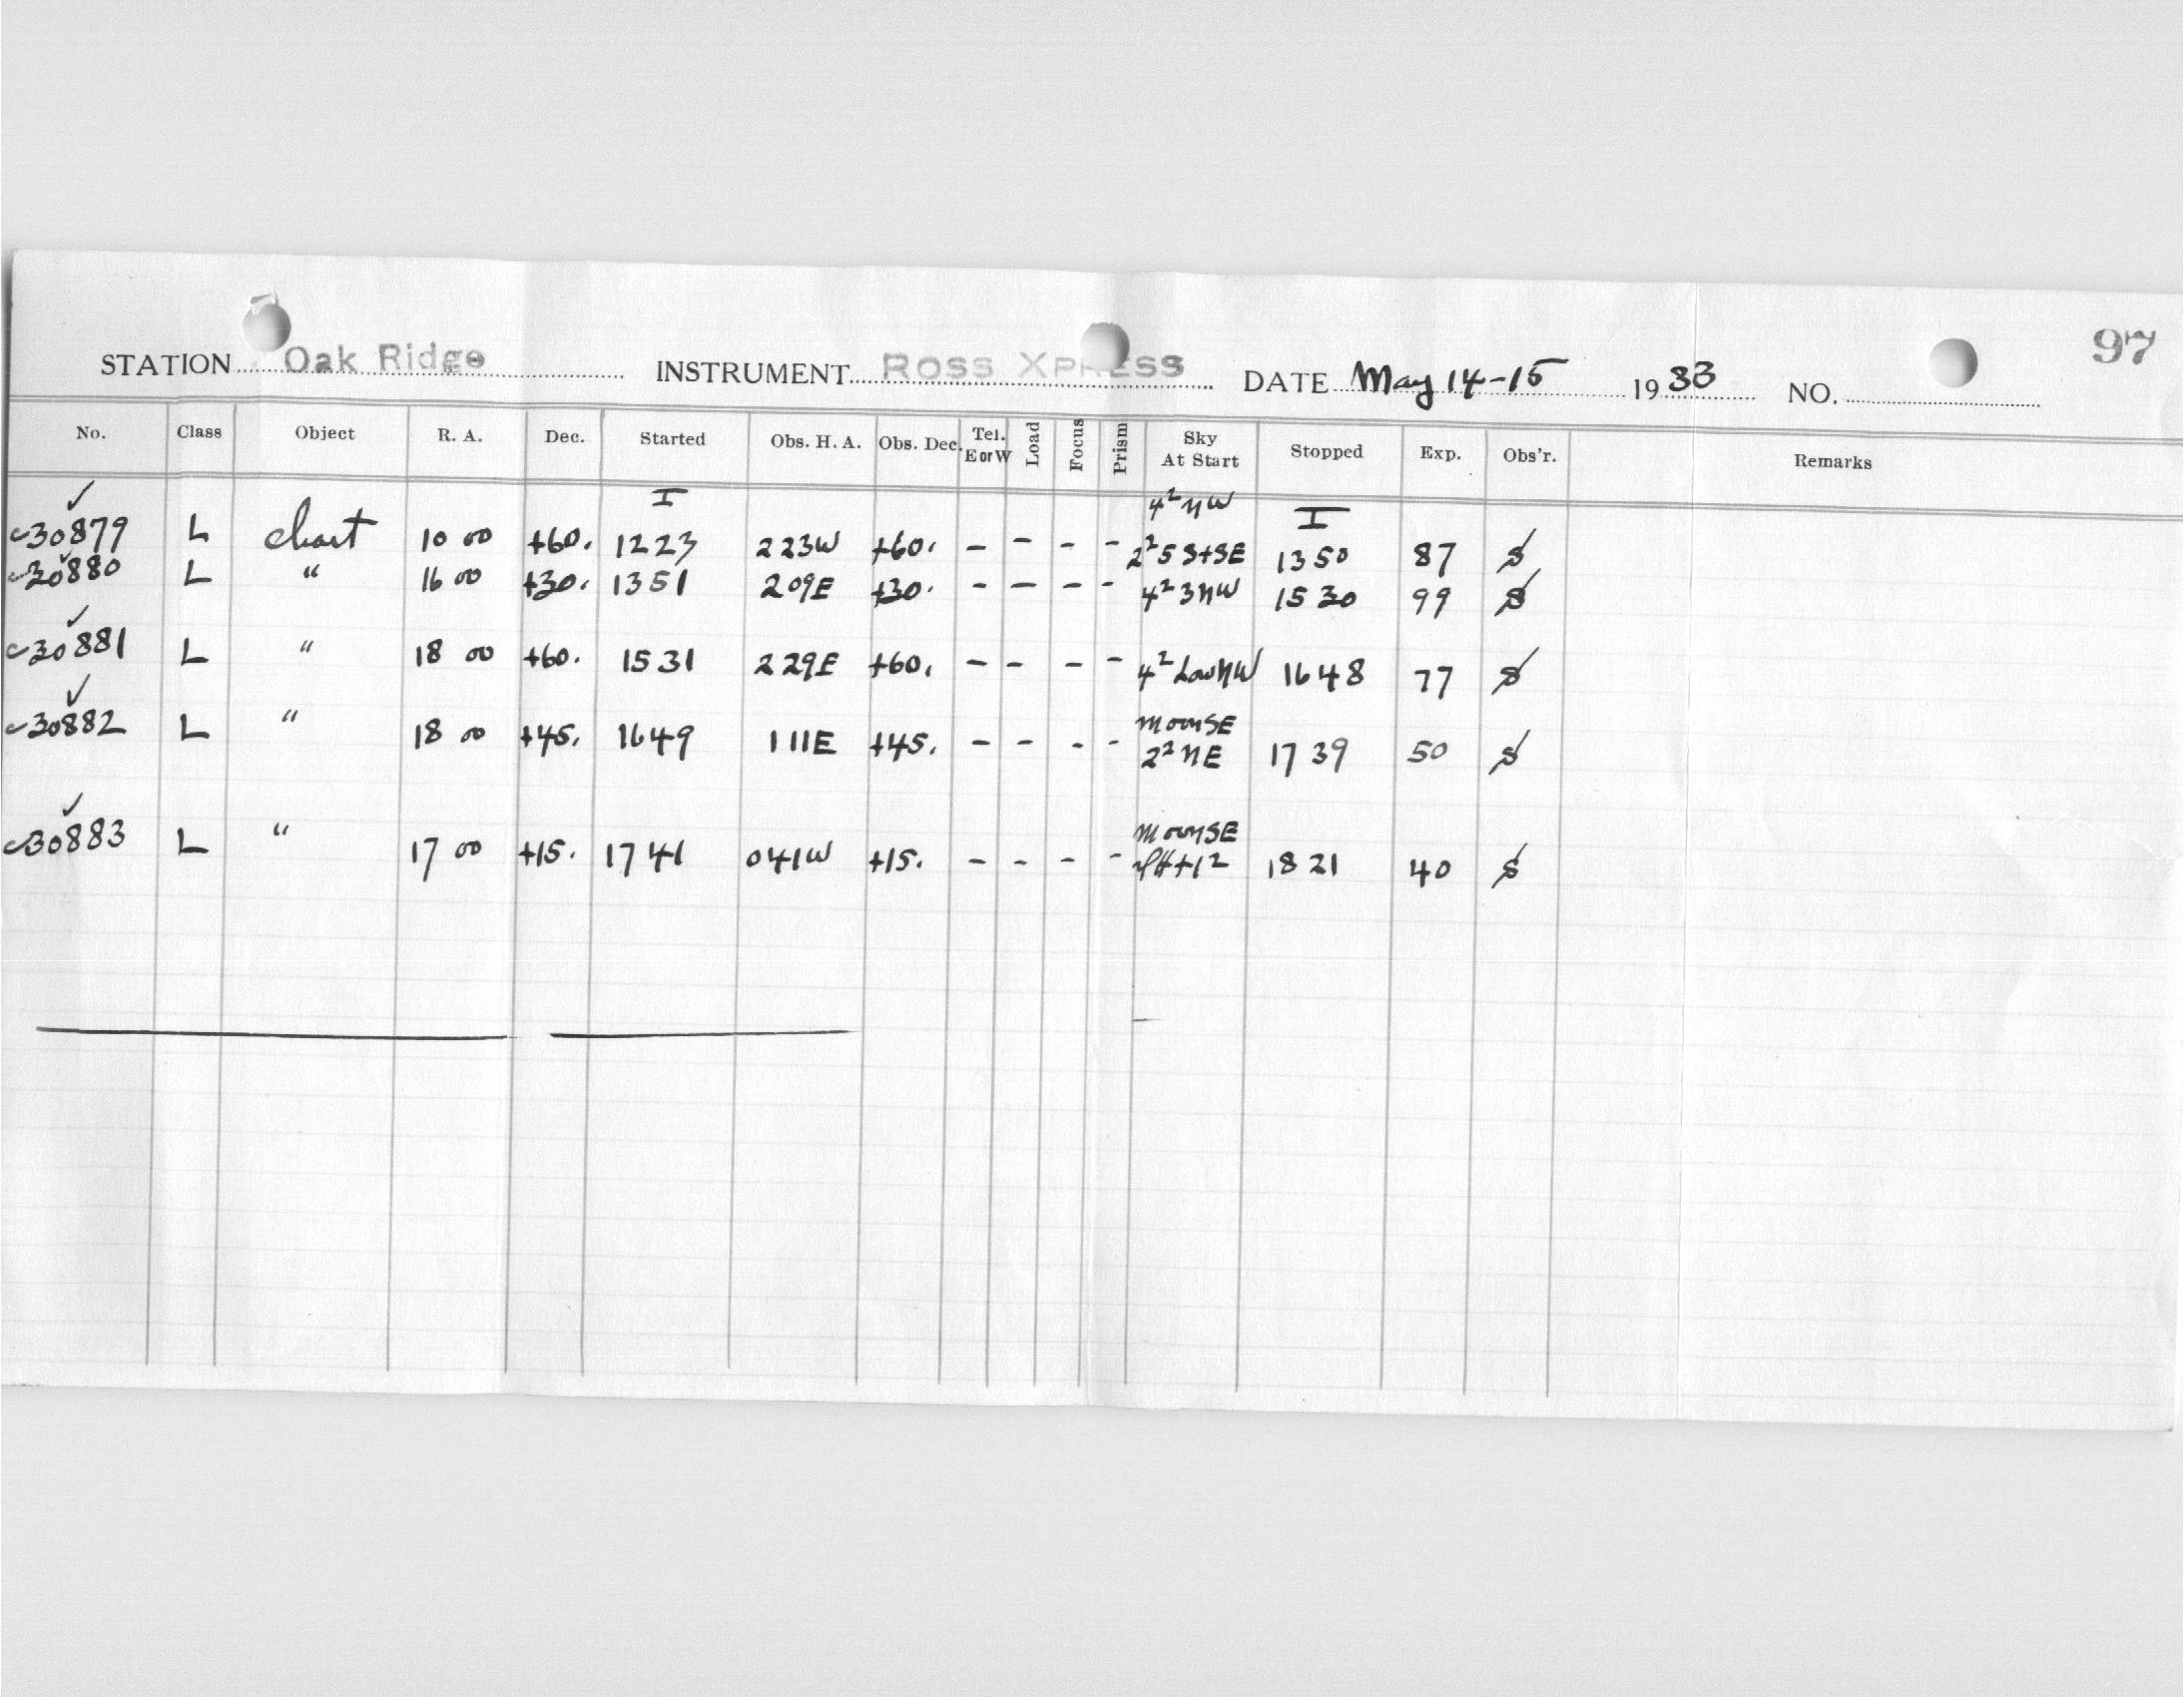 97
STATION Oak Ridge INSTRUMENT ROSS XPRESS DATE May 14-15 1933 NO.
No. Class Object R. A. Dec. Started Obs. H. A. Obs. Dec. Tel. E or W Load Focus Prism Sky At Start Stopped Exp. Obs'r. Remarks
✓ I 4² NW I
c30879 L chart 10 00 +60. 1223 223W +60. - - - - 2²5 S+SE 1350 87 S
✓
c30880 L " 16 00 +30. 1351 209E +30. - - - - 4²3NW 1530 99 S
✓
c30881 L " 18 00 +60. 1531 229E +60. - - - - 4² Low NW 1648 77 S
✓ moon SE
c30882 L " 18 00 +45. 1649 111E +45. - - - - 2² NE 1739 50 S
✓ moon SE
c30883 L " 17 00 +15. 1741 041W +15. - - - - +1² 1821 40 S